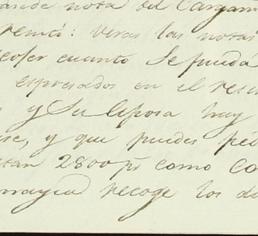 ande nota del Cargam
remití: veras las notas
cojer cuanto se pueda
espresados en el resu
y su esposa hay
se, y que puedes ped
stan 2800 ps como Co
rrayca recoge los d